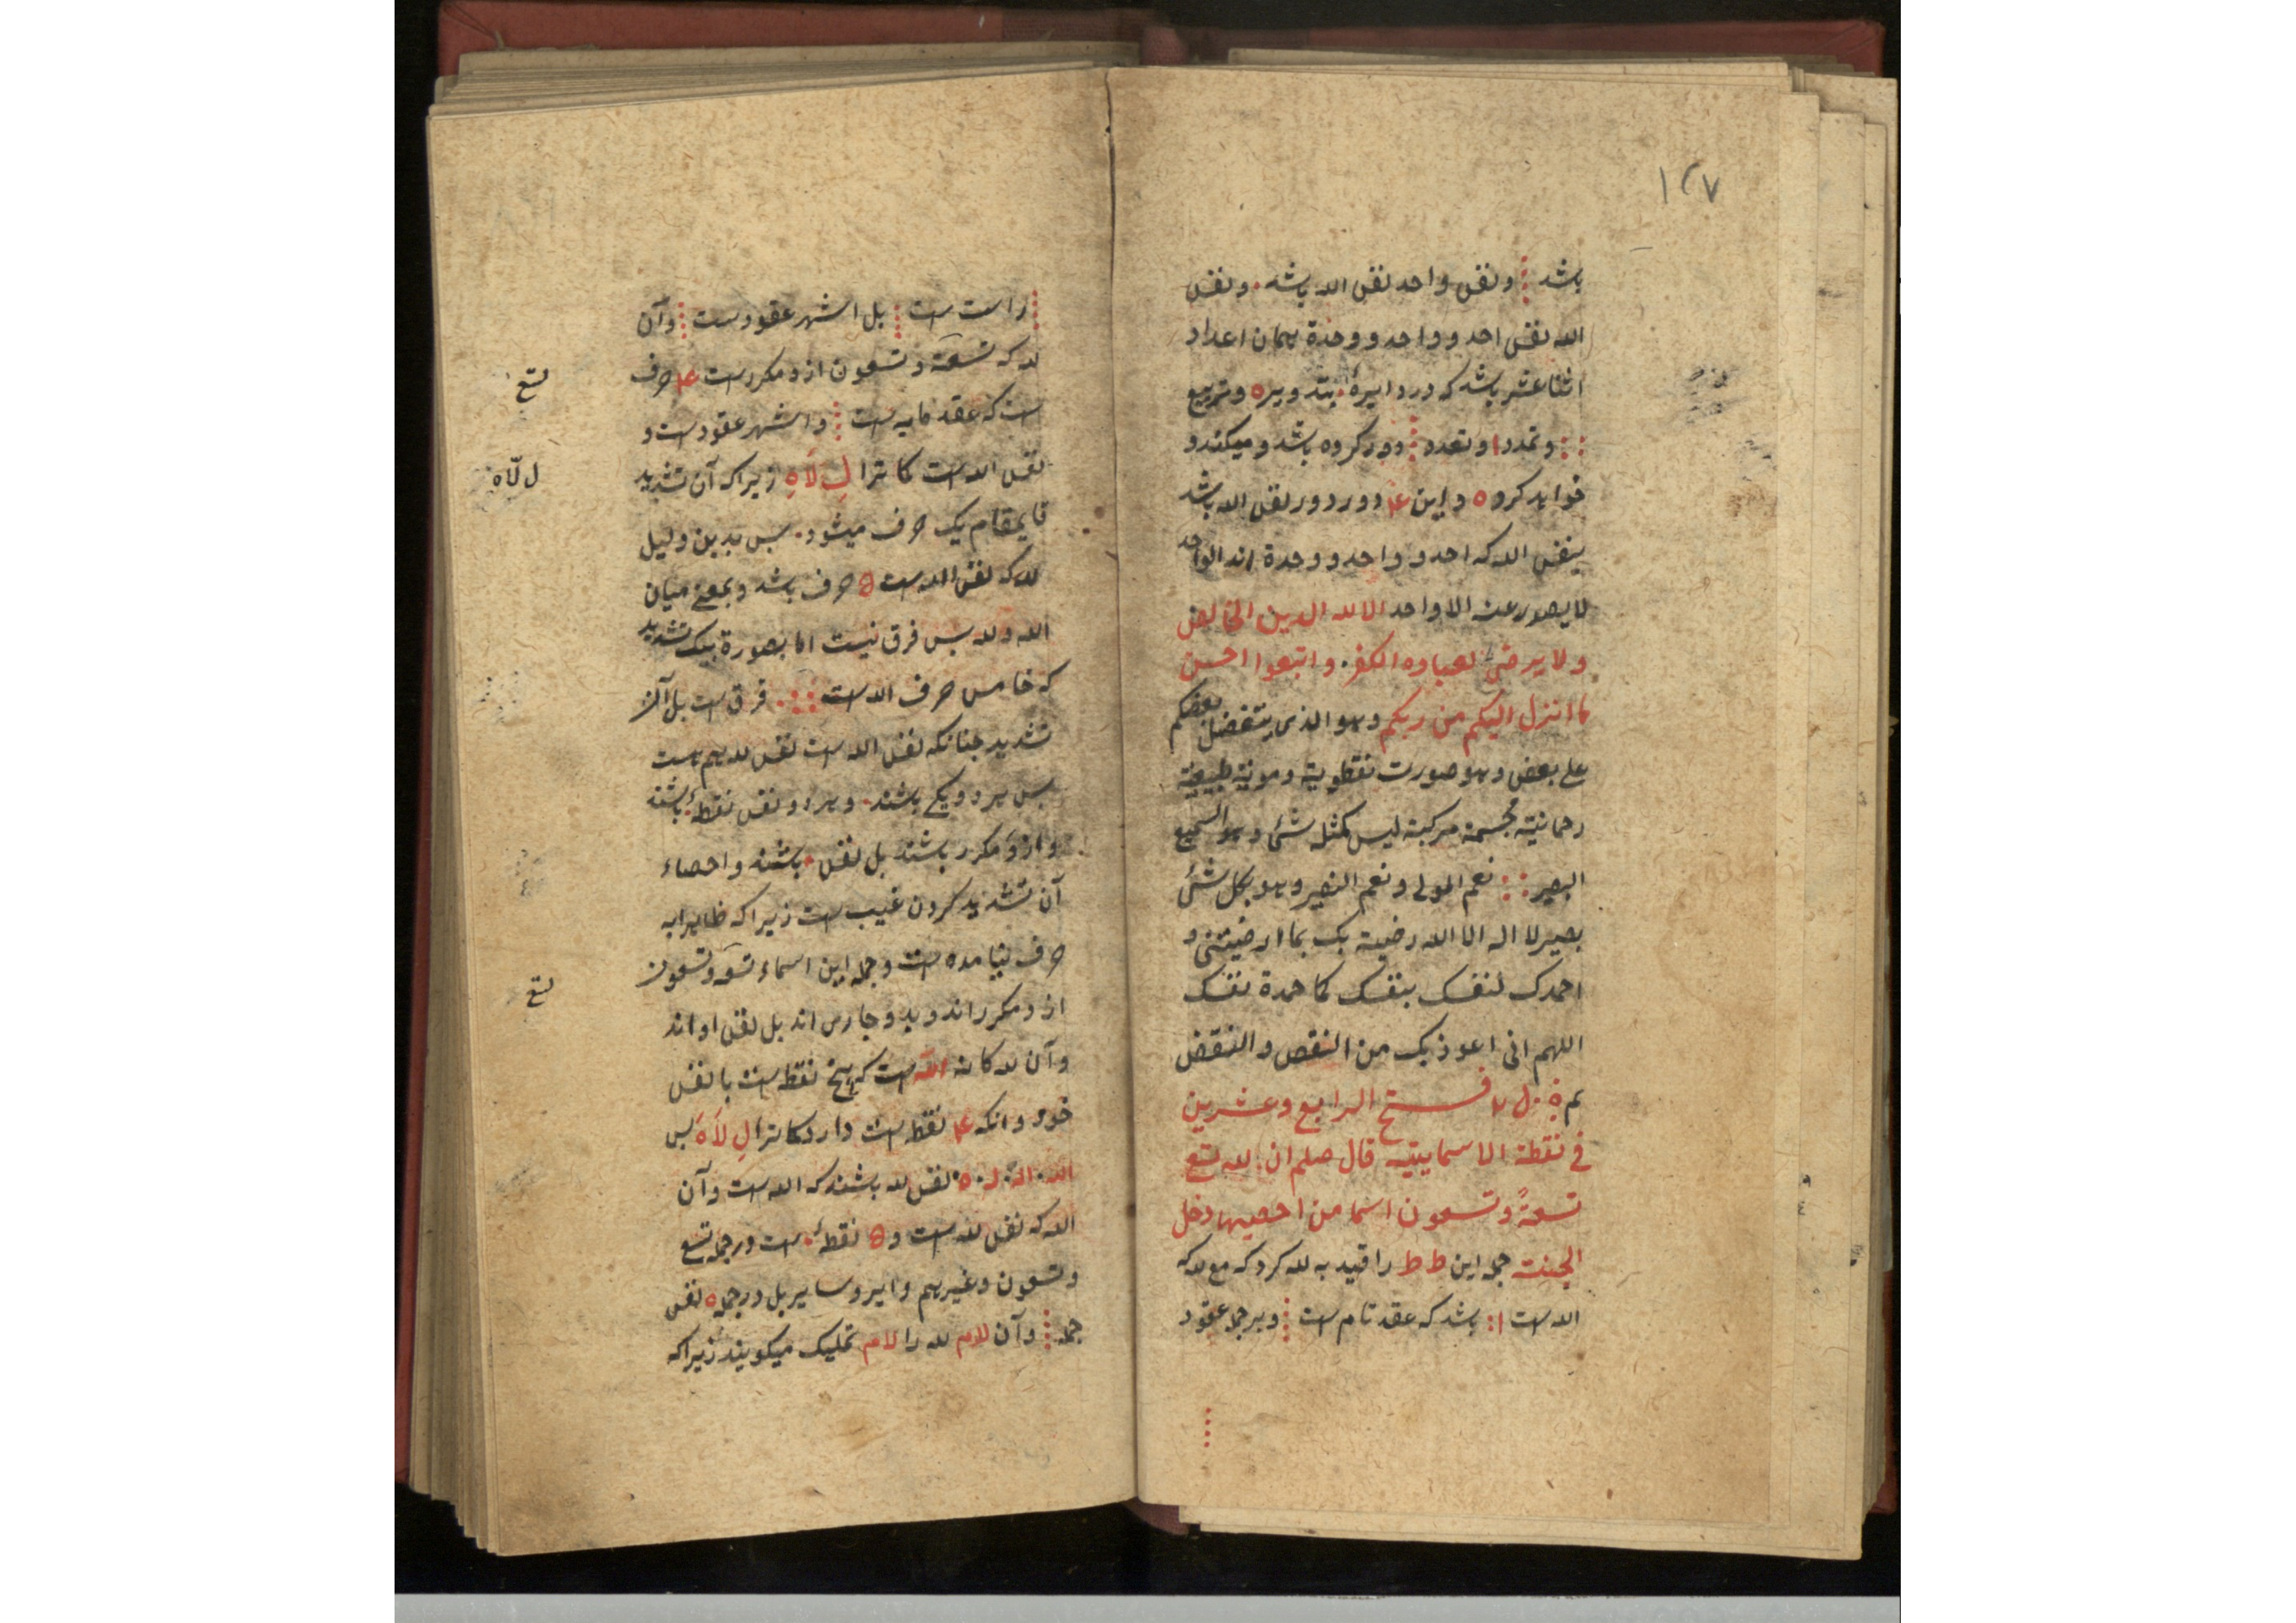 ۱۲۷
باشد ⁞ ونفس واحد نفس الله باشد . ونفس
الله نفس احد و واحد و وحدة همان اعداد
اثنا عشر باشد که در دایرهٔ . بتدویر ه وتربیع
:: وتمدد ا وتعدد ⁞ دور کرده باشد و میکند و
خواهد کرد ه و این ۴ دور دور نفس الله باشد
بنفس الله که احد و واحد و وحدة اند الواحد
لا یصور عنه الا واحد الا لله الدین الخالص
ولا یرضی لعباده الکفر . واتبعوا احسن
ما انزل الیکم من ربکم وهو الذی یتفضل بعضکم
علی بعض وهو صورت نقطویة ومونیة طبیعیة
رحمانیة مجسمة مرکبة لیس کمثل شئ وهو السمیع
البصیر :: نعم المولی ونعم النصیر وهو بکل شئ
بصیر لا اله الا الله رضیة بک بما ارضیتنی و
احمدک لنفسک بنفسک کما حمدة نفسک
اللهم انی اعوذ بک من النقص والنقض
فتح الرابع وعشرین
فی نقطة الاسماییته قال صلم ان لله تسع
تسعةً وتسعون اسما من احصیها دخل
الجنت جمله این ط ط را قید به لله کرد که مع لله که
الله است ا : باشد که عقد تام است ⁞ وبر جمله عقود
⁞ راست است ⁞ بل اشهر عقودست ⁞ وآن
لله که تسعة وتسعون ازو مکررست ۴ حرف
است که عقد مایه است ⁞ واشهر عقودست و
نفس الله است کما ترا لِ لَاهِ زیرا که آن تشدید
قایمقام یک حرف میشود . پس بدین دلیل
لله که نفس الله است ه حرف باشد و بمعنی میان
الله ولله پس فرق نیست اما بصورة بیک تشدید
که خامس حرف الله است :: . فرق است بل آن
تشدید چنانکه نفس الله است نفس لله هم هست
پس هر دو یکی باشند . وهر دو نفس نقطهٔ . باشند
و ازو مکرر باشند بل نفس . باشند و احصاء
آن تشدید کردن غیب است زیرا که ظاهرا به
حرف نیامده است وجمله این اسماء تسعه وتسعون
ازو مکرر اند و بدو جارس اند بل نفس او اند
و آن لله کانه الله است که پنج نقطه است با نفس
خود و آنکه ۴ نقطه است دارد کما ترا لِ لَاهَ پس
الله . اله . له . ه . نفس لله باشند که الله است وآن
الله که نفس لله است و ه نقطهٔ . است در جمله تسع
وتسعون وغیرهم دایر و سایر بل در جمله ه نفس
جمله ⁞ وآن للام لله را لام تملیک میکویند زیرا که
تسع
ل لّاه
تسع